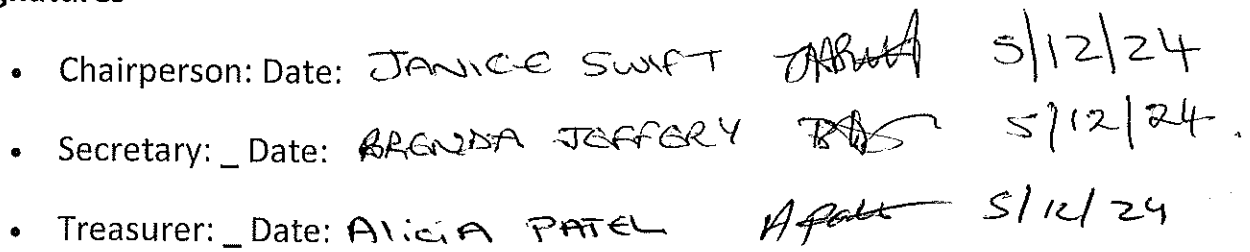 • Chairperson: Date: JANICE SWIFT 5/12/24
• Secretary: _ Date: BRENDA JEFFERY 5/12/24.
• Treasurer: _ Date: AliciA PATEL A Patel 5/12/24